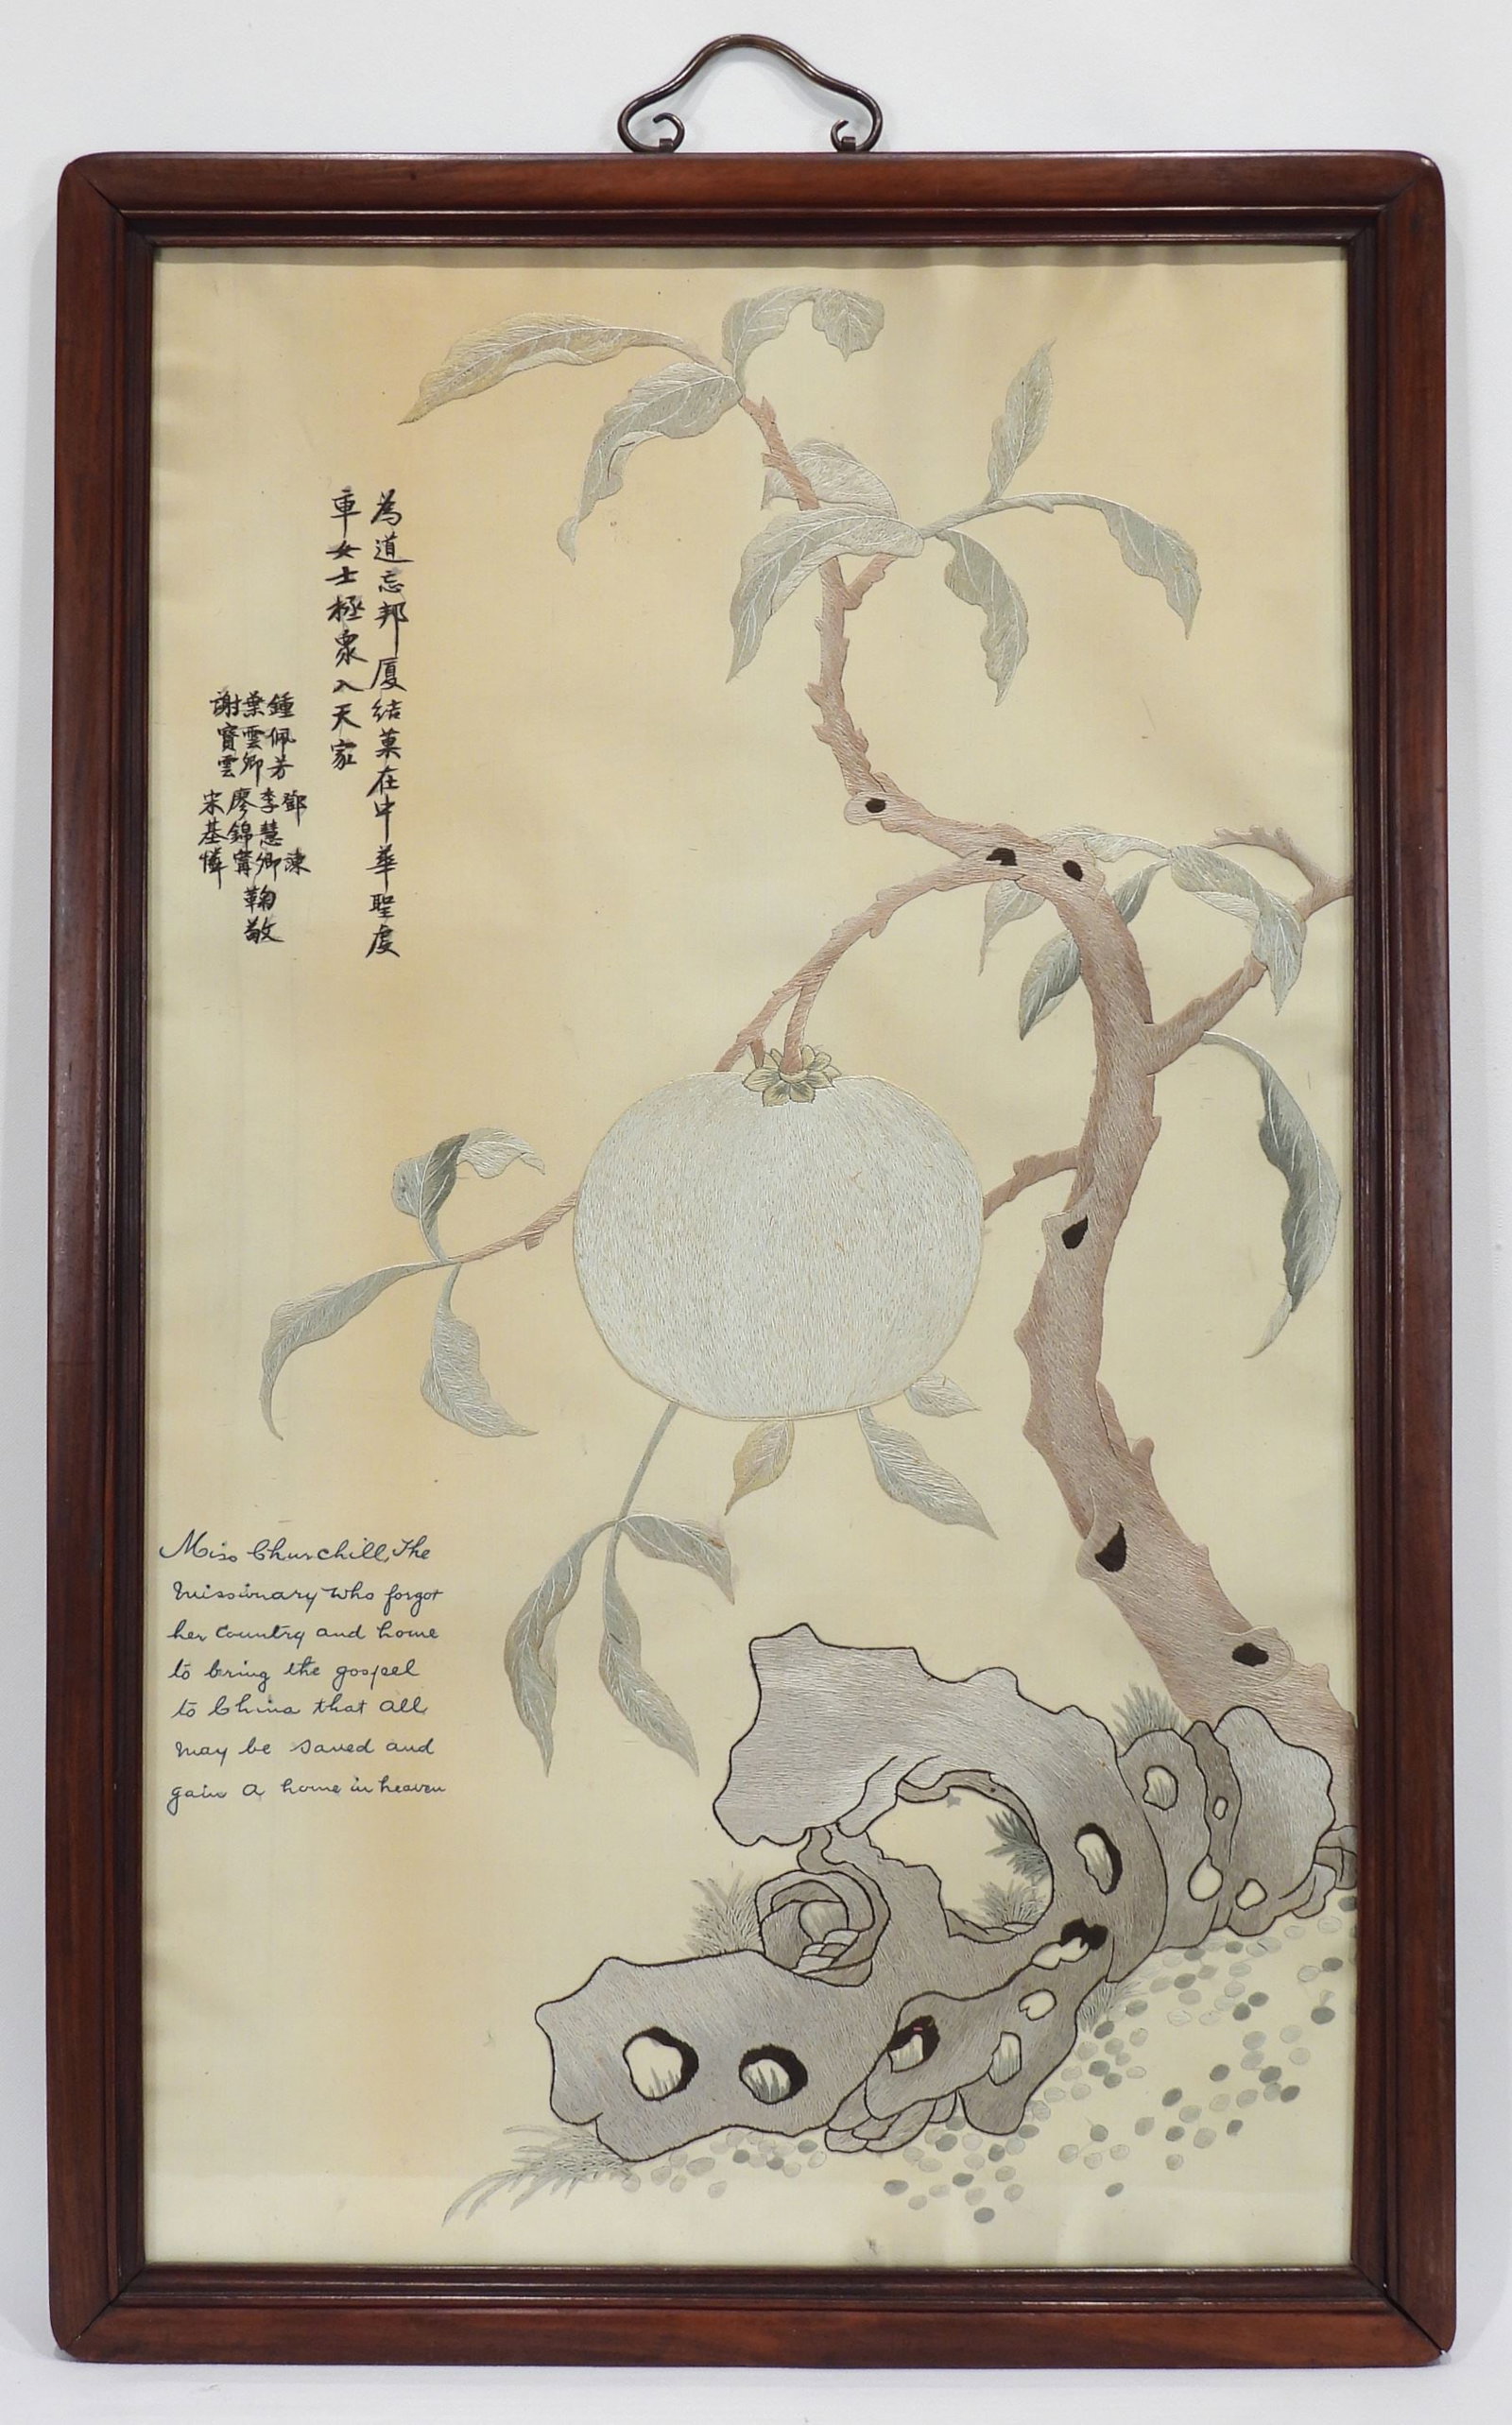 為道忘邦廈結菓在中華聖虔
車女士極衆入天家
鍾佩芳
葉雲卿
謝寶雲
鄧漣
李慧卿
廖錦寗
宋基憐
鞠敬
Miss Churchill, The
Missionary who forgot
her Country and home
to bring the gospel
to China that all
may be saved and
gain a home in heaven